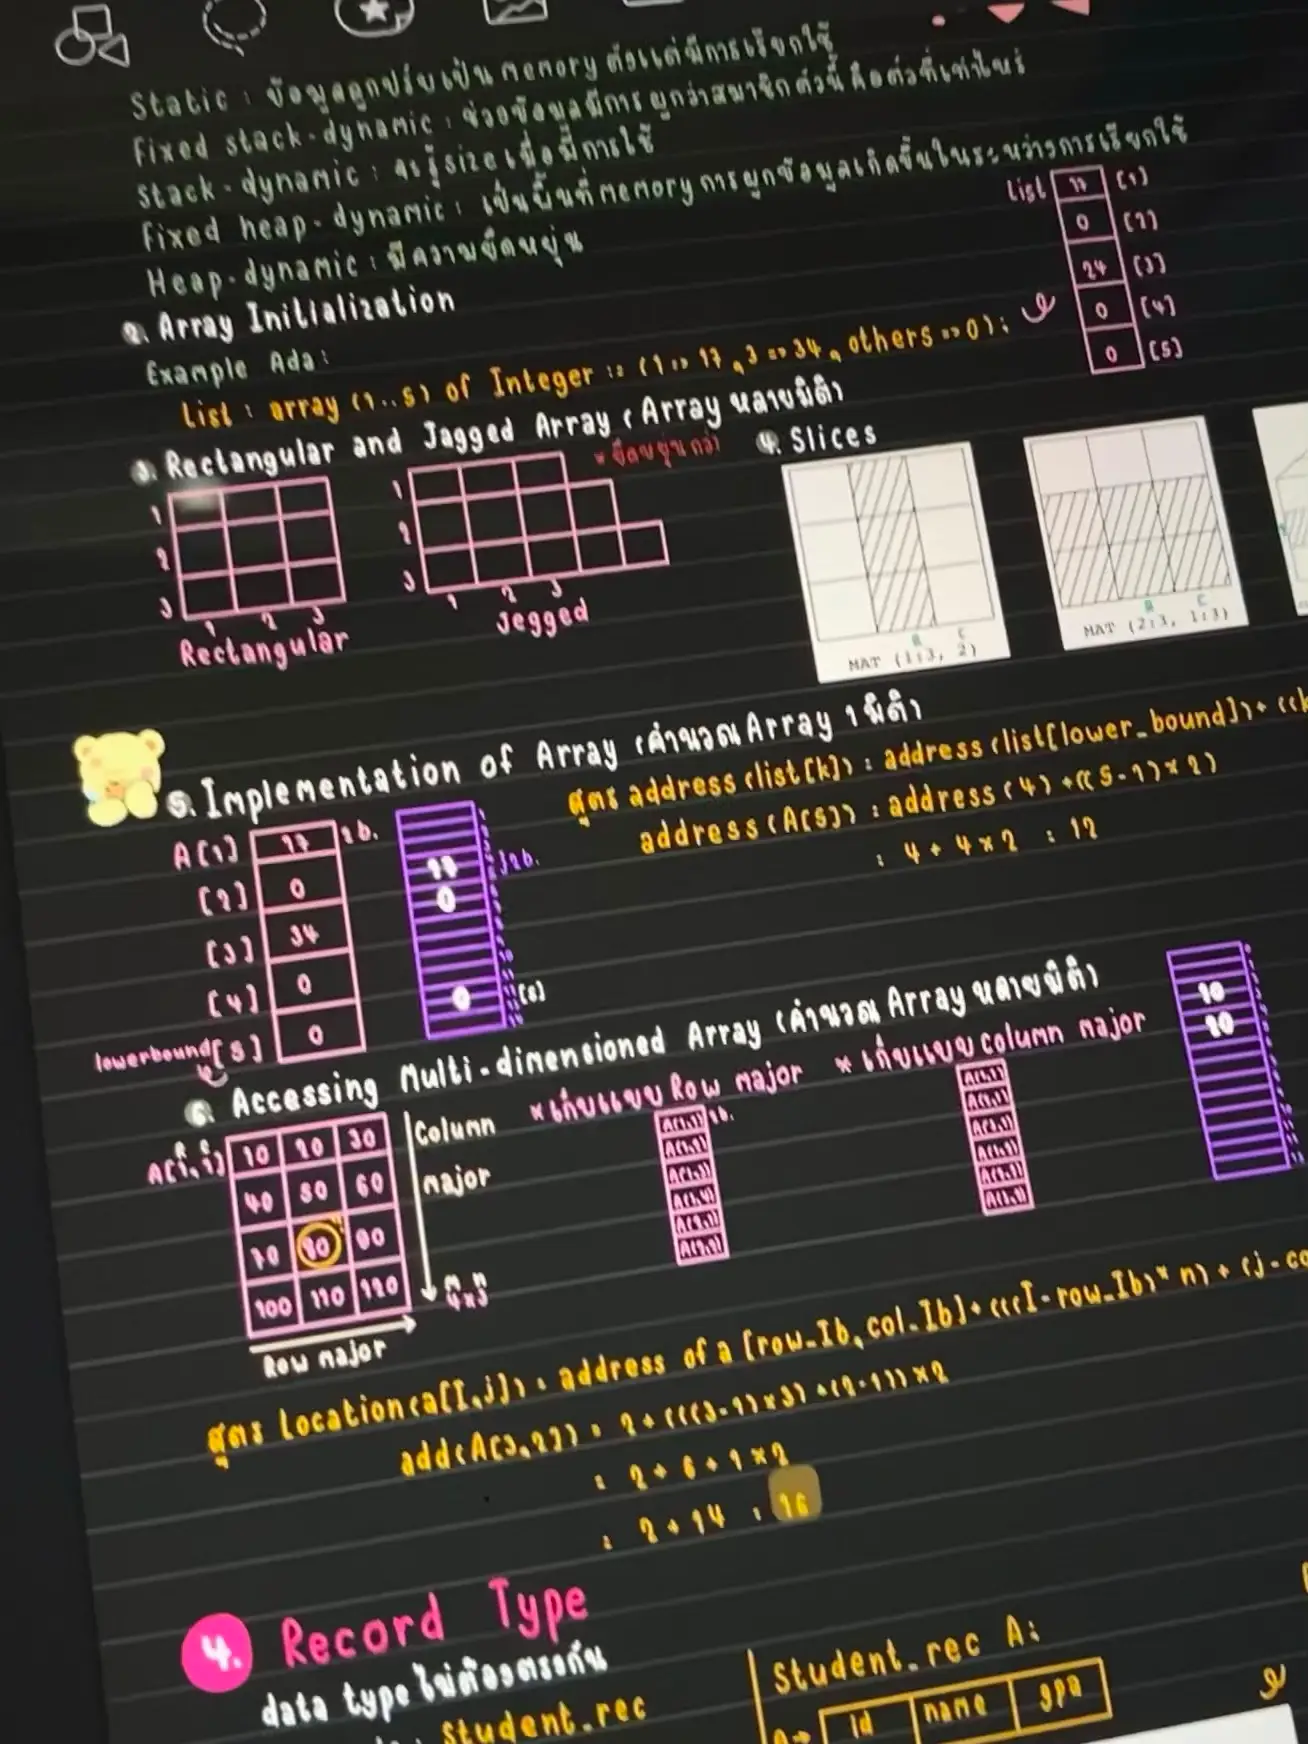 Static : ข้อมูลถูกปรับเป็น memory ตั้งแต่มีการเรียกใช้
Fixed stack-dynamic : ช่วงข้อมูลมีการ ผูกว่าสมาชิก ตัวนี้ คือตัวที่เท่าไหร่
Stack-dynamic : จะรู้ size เมื่อมีการใช้
Fixed heap-dynamic : เป็นพื้นที่ memory การผูกข้อมูลเกิดขึ้นในระหว่างการเรียกใช้
Heap-dynamic : มีความยืดหยุ่น
List 17 [1]
0 [2]
24 [3]
0 [4]
0 [5]
2. Array Initialization
Example Ada:
List : array (1..5) of Integer := (1 => 17, 3 => 34, others => 0);
3. Rectangular and Jagged Array (Array หลายมิติ)
* ยืดหยุ่นกว่า
1
2
3
1 2 3
Rectangular
1
2
3
1 2 3
Jegged
4. Slices
R C
MAT (1:3, 2)
R C
MAT (2:3, 1:3)
5. Implementation of Array (คำนวณ Array 1 มิติ)
A[1] 17 2b.
[2] 0
[3] 34
[4] 0
lowerbound [5] 0
17 }2b.
0
0 [5]
สูตร address(list[k]) : address(list[lower_bound]) + ((k
address(A[5]) : address(4) + ((5-1)×2)
: 4 + 4×2 : 12
6. Accessing Multi-dimensioned Array (คำนวณ Array หลายมิติ)
A[i,j]
R C
10 20 30
40 50 60
70 80 90
100 110 120
Column
major
m n
4×3
Row major
* เก็บแบบ Row major
2b.
* เก็บแบบ column major
10
10
สูตร Location(a[I,j]) : address of a [row_Ib, col_Ib] + (((I-row_Ib)*n) + (j-co
add(A[3,2]) : 2 + (((3-1)×3)+(2-1))×2
: 2 + 6 + 1×2
: 2 + 14 : 16
4. Record Type
data type ไม่ต้องตรงกัน
student_rec
Student_rec A;
id name gpa